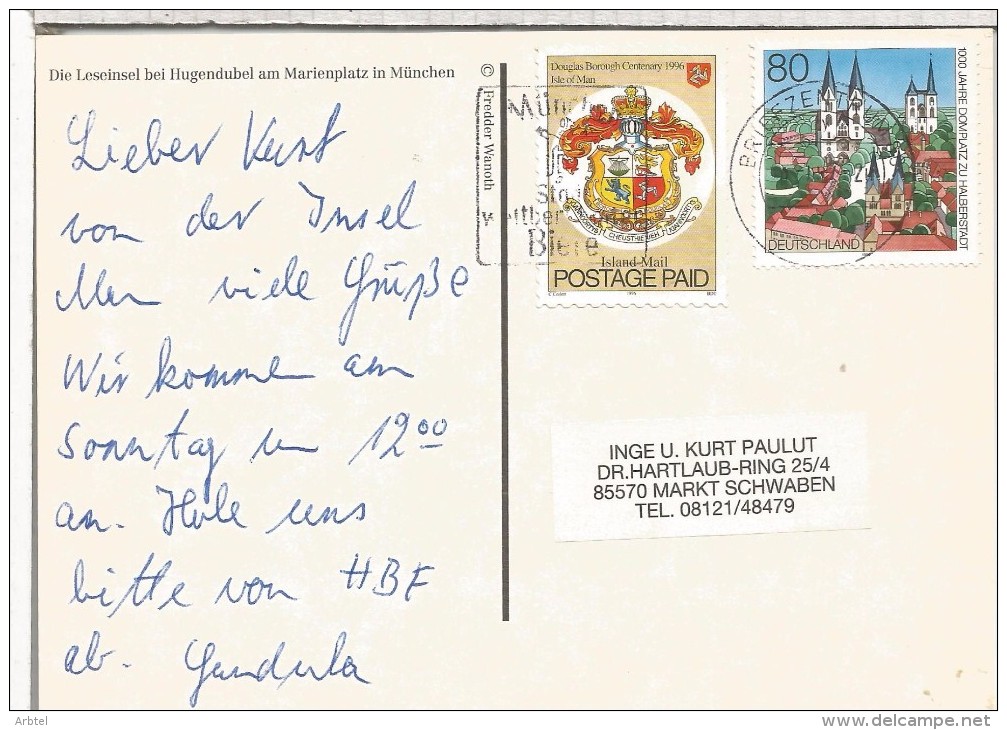 Die Leseinsel bei Hugendubel am Marienplatz in München
© Fredder Wanoth
Lieber Kurt
von der Insel
Man viele Grüße
Wir kommen am
Sonntag um 12⁰⁰
an. Hole uns
bitte von HBF
ab. Gundula
Douglas Borough Centenary 1996
Isle of Man
Island Mail
POSTAGE PAID
1996
Biere
80
DEUTSCHLAND
1000 JAHRE DOMPLATZ ZU HALBERSTADT
INGE U. KURT PAULUT
DR.HARTLAUB-RING 25/4
85570 MARKT SCHWABEN
TEL. 08121/48479
Arbtel
www.delcampe.net